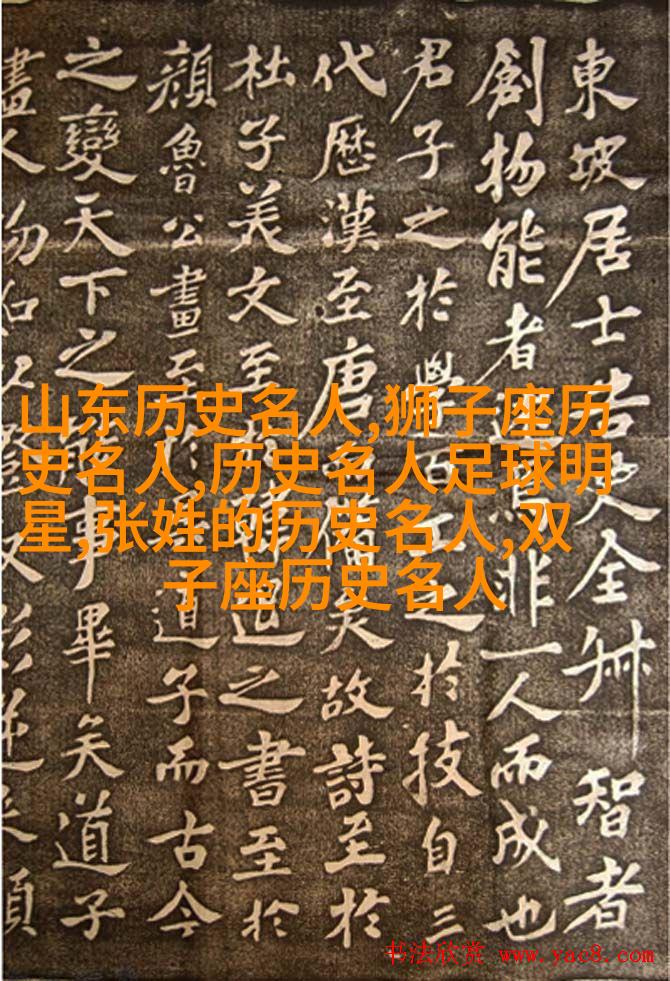 東坡居士全智者
創物能者述焉非一人而成也
君子之於學百工之於技自三
代歷漢至唐而備矣故詩至於
杜子美文至於韓退之書至於
顏魯公畫至於吳道子而古今
之變天下之能事畢矣道子
畫人物如以燈取影逆來順
山东历史名人,狮子座历
史名人,历史名人足球明
星,张姓的历史名人,双
子座历史名人
书法欣赏 www.yac8.com